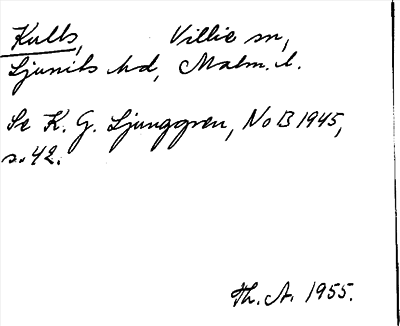 Kulls, Villie sn,
Ljunits hd, Malm. l.
Se K. G. Ljunggren, NoB 1945,
s. 42.
Th. A. 1955.